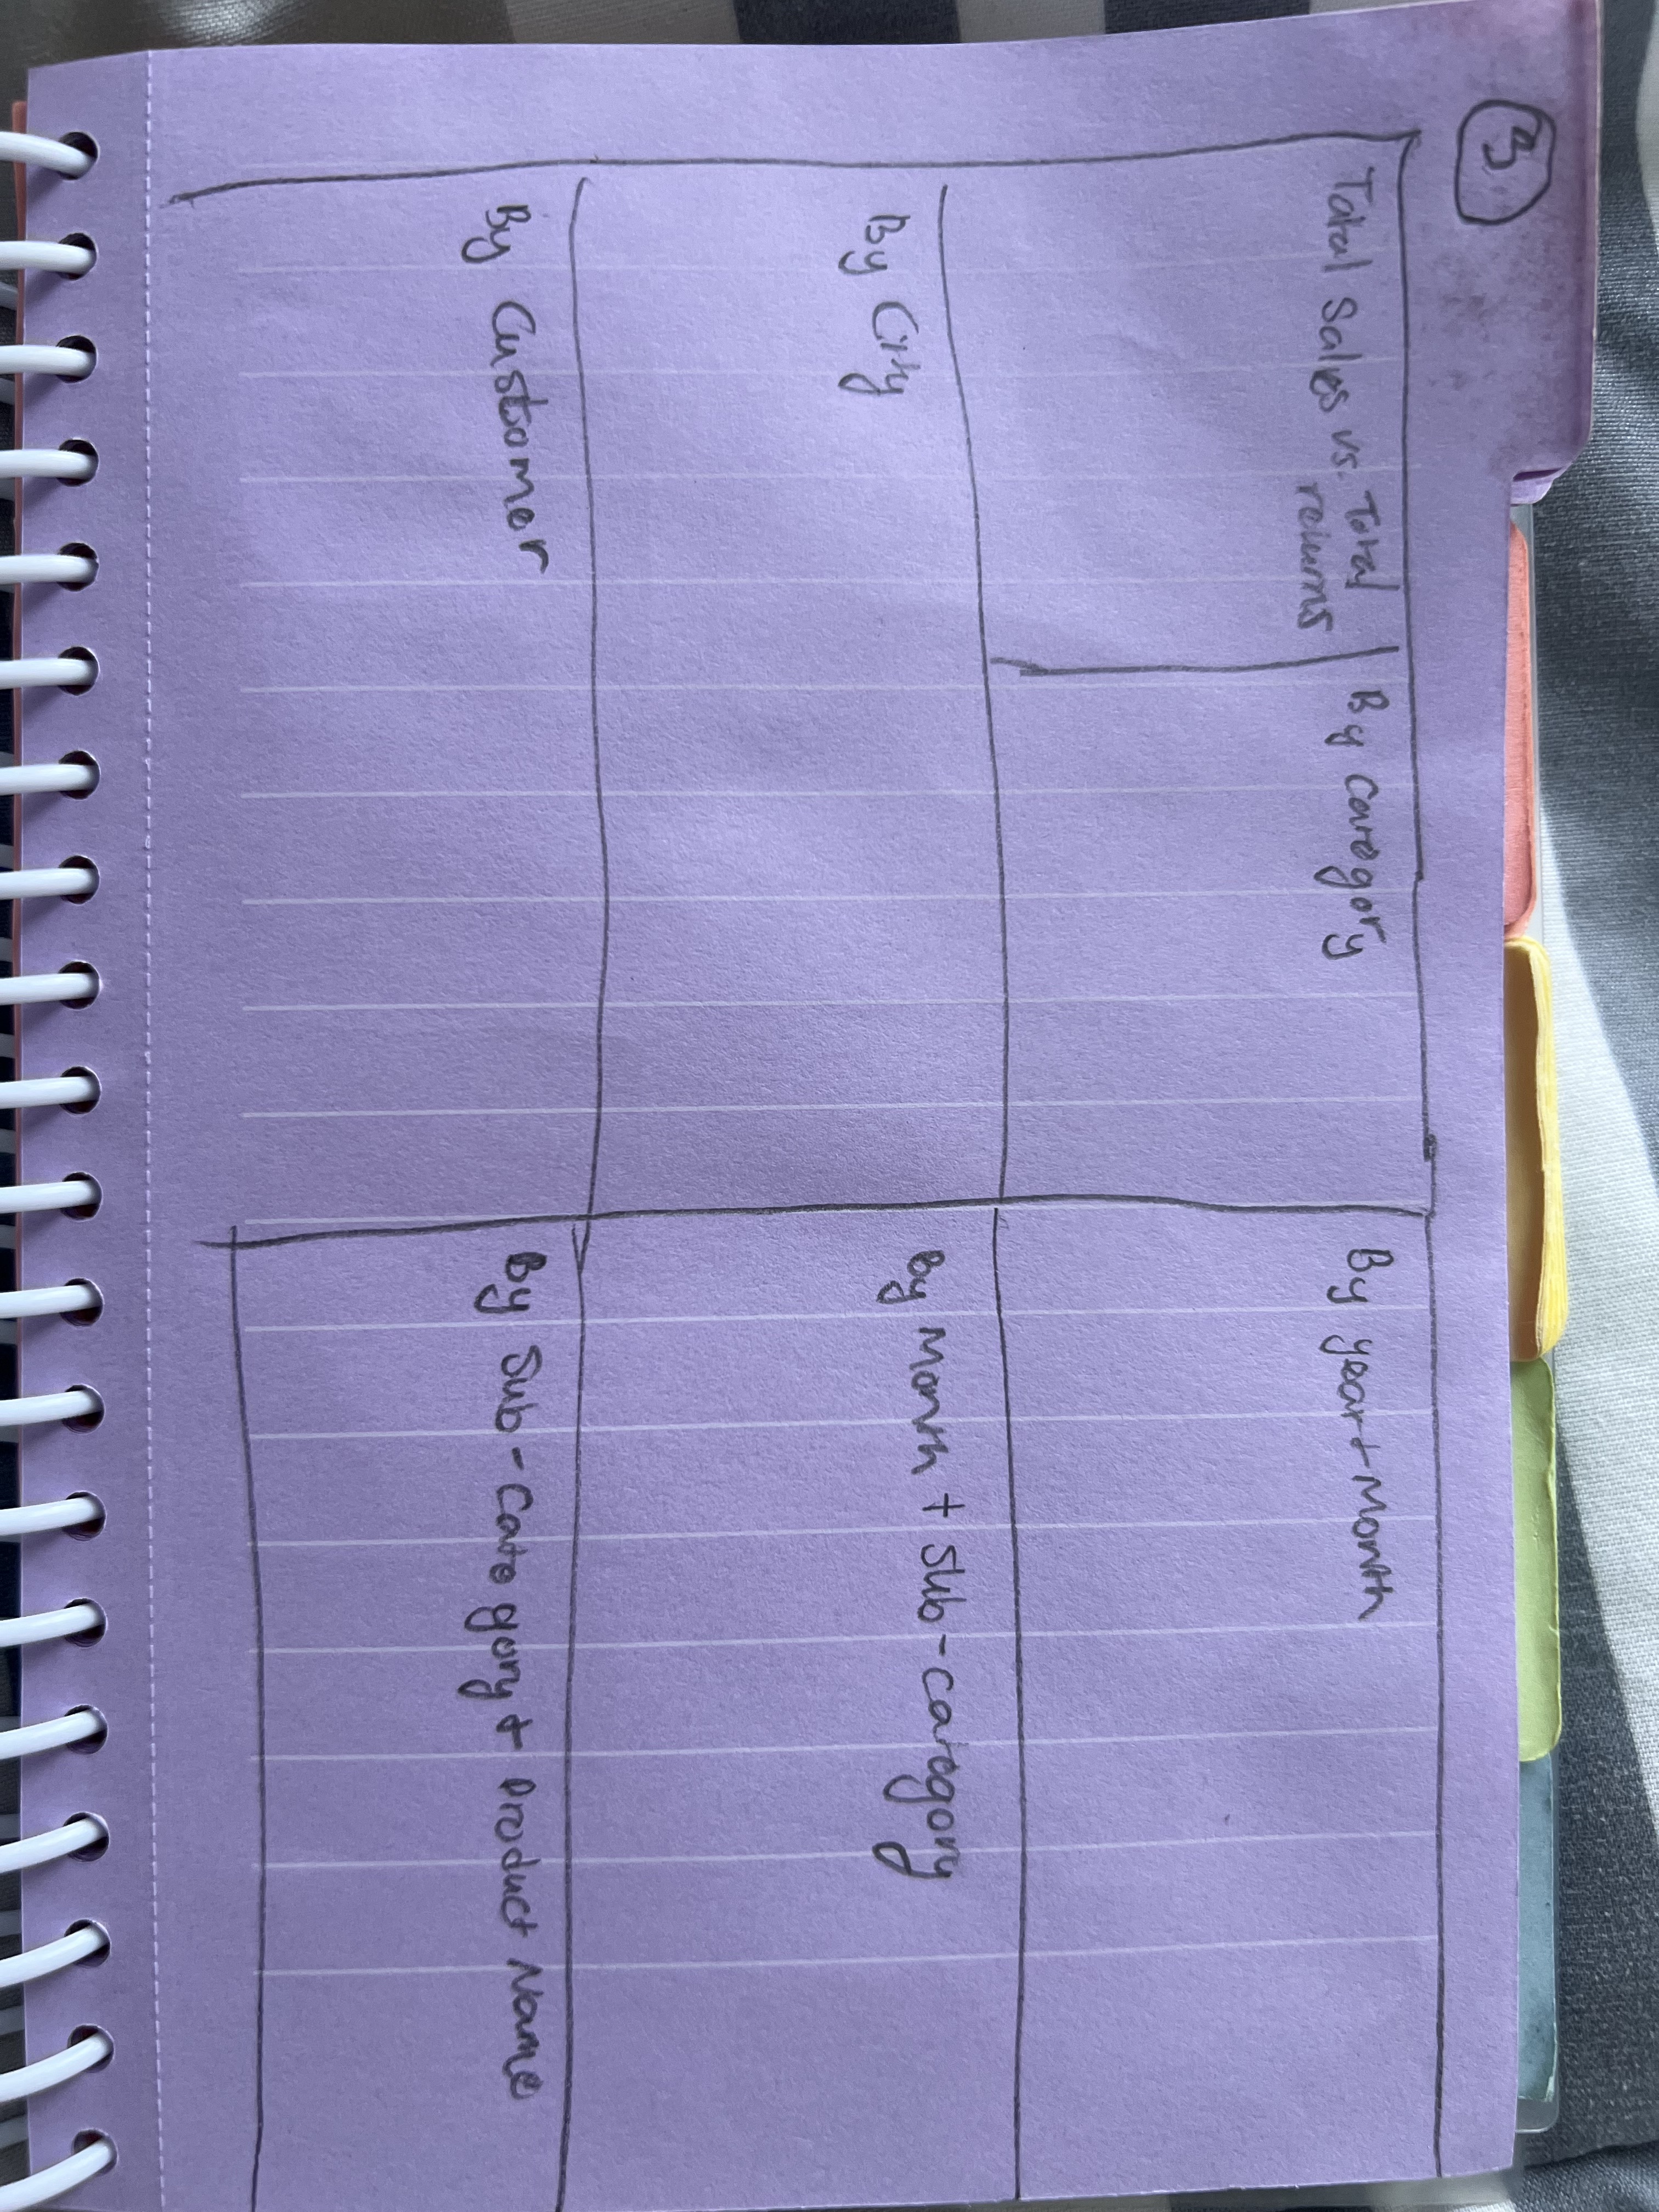 3
Total Sales vs. Total
returns
By Category
By year + Month
By City
By Month + Sub-category
By Customer
By Sub-Category + Product Name